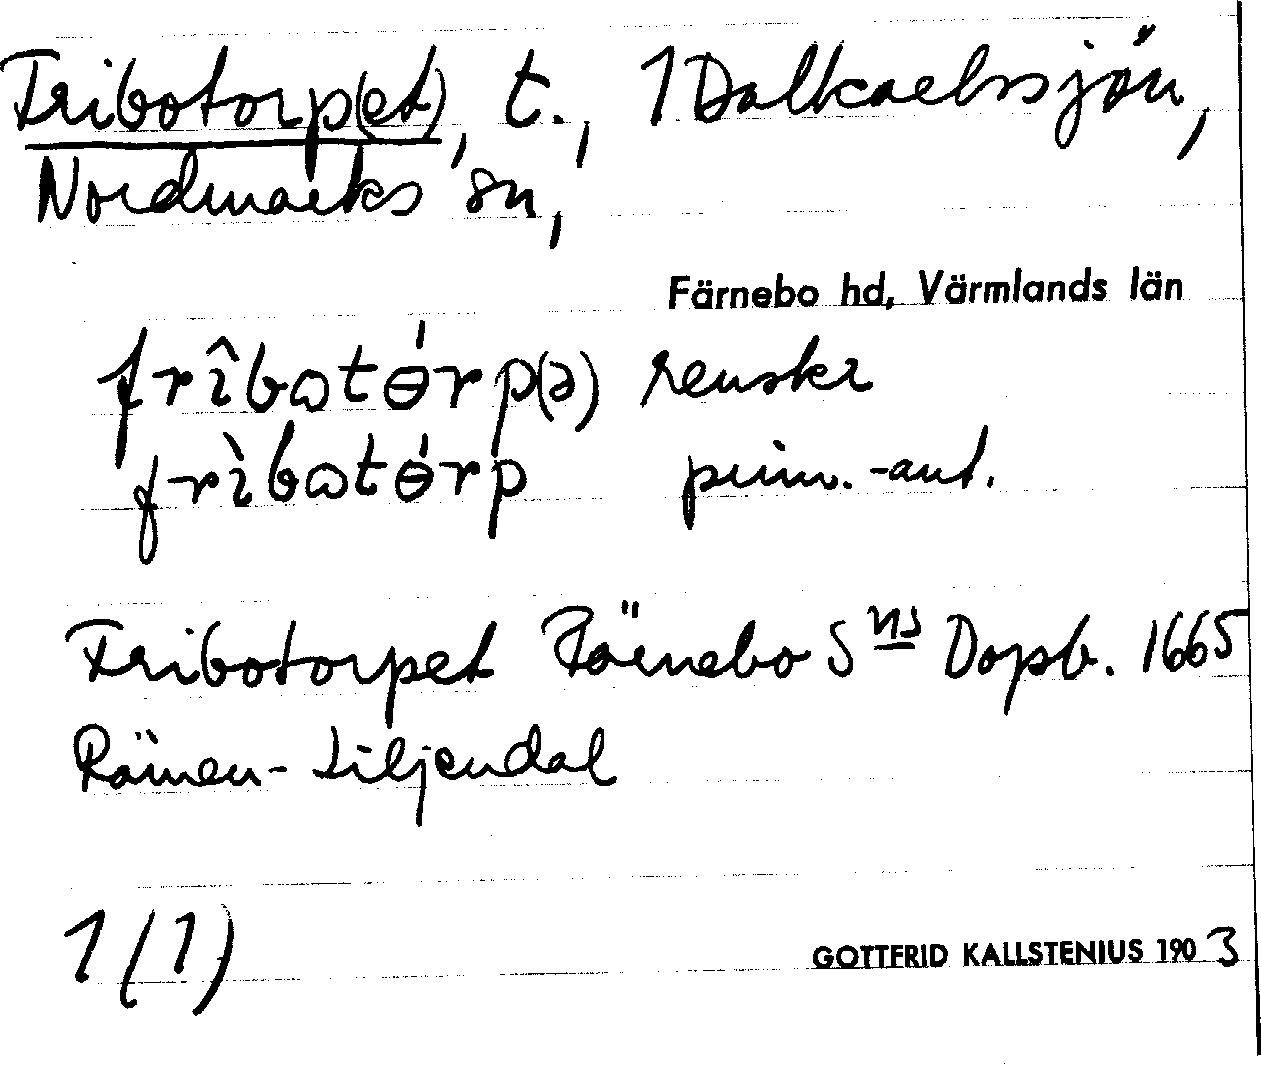 Fribotorp(et), t., 1 Dalkarlssjön,
Nordmarks sn,
Färnebo hd, Värmlands län
frîbɷtɵ́rp(ə) renskr
frìbɷtɵ́rp prim.-ant.
Fribotorpet Färnebo Sns Dopb. 1665
Rämen-Liljendal
1(1)
GOTTFRID KALLSTENIUS 1903